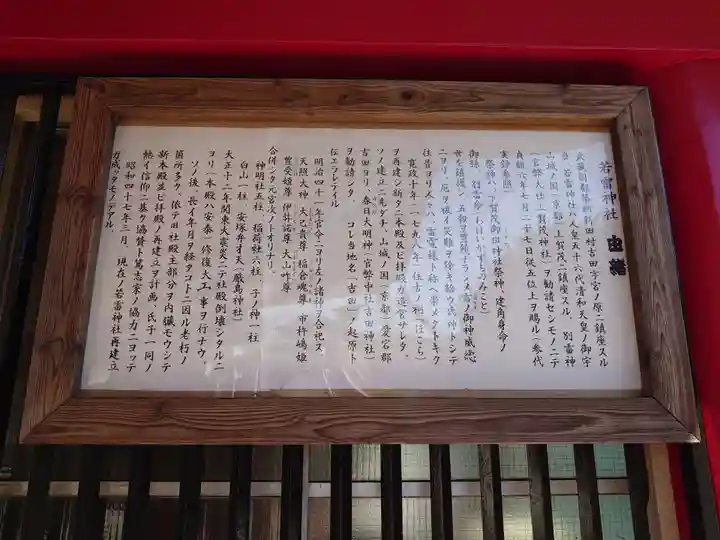 若雷神社 由緒
武蔵国都築郡新田村吉田字宮ノ原ニ鎮座スル
当 若雷神社ハ人皇五十六代清和天皇ノ御宇
山城ノ国(京都)上賀茂ニ鎮座スル 別雷神
(官幣大社上賀茂神社)ヲ勧請セシモノニテ
貞観六年七月二十七日従五位上ヲ賜ル(三代
実録参照)
祭神ハ、下賀茂御祖神社祭神、建角身命ノ
御孫 別雷命(わけいかずちのみこと)
世を鎮護シ 五穀ヲ豊饒ナラシメ雷ノ御神威
ニヨリ、厄ヲ祓イ災難ヲ除キ給ウ氏神トシテ
往昔ヨリ人々ハ 雷電様ト称シ崇メタトキク
寛政十年(一七九八年)住吉ノ利(ほこら)
ヲ再建シ新タニ本殿及ビ拝殿ガ造営サレタ
ソノ建立ニ先ダチ、山城ノ国(京都)愛宕郡
吉田ヨリ、春日大明神(官幣中社吉田神社)
ヲ勧請シタ コレ当地名「吉田」ノ起原ト
伝エラレテイル
明治四十一年官令ニヨリ左ノ諸神ヲ合祀ス
天照大神 大己貴尊 稲倉魂尊 市杵嶋姫
豊受姫尊 伊弉諾尊 大山咋尊
合併シタ元宮次ノトオリナリ。
神明社五社、稲荷社六社、子ノ神一社
白山一社 安塚弁才天(厳島神社)
大正十二年関東大震災ニテ社殿倒壊シタルニ
ヨリ(本殿ハ安泰)修復大工事ヲ行ナウ、
ソノ後、長イ年月ヲ経タコトニ因ル老朽ノ
箇所多ク、依テ旧社殿主部分ヲ内臓モウシテ
新本殿並ビ拝殿ノ再建立ヲ計画 氏子一同ノ
熱イ信仰ニ基ク協賛ト篤志家ノ協力ニヨッテ
昭和四十七年三月 現在ノ若雷神社再建立
ガ成ッタモノデアル